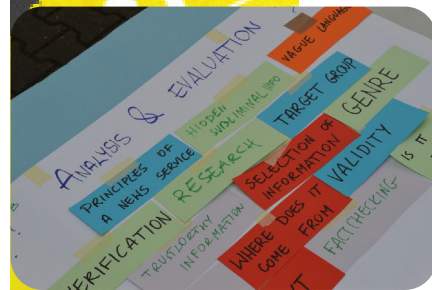 ANALYSIS & EVALUATION
VAGUE LANGUAGE
HIDDEN
SUBLIMINAL INFO
TARGET GROUP
GENRE
PRINCIPLES OF
A NEWS SERVICE
RESEARCH
SELECTION OF
INFORMATION
VALIDITY
IS IT
VERIFICATION
TRUSTWORTHY
INFORMATION
WHERE DOES IT
COME FROM
FACTCHECKING